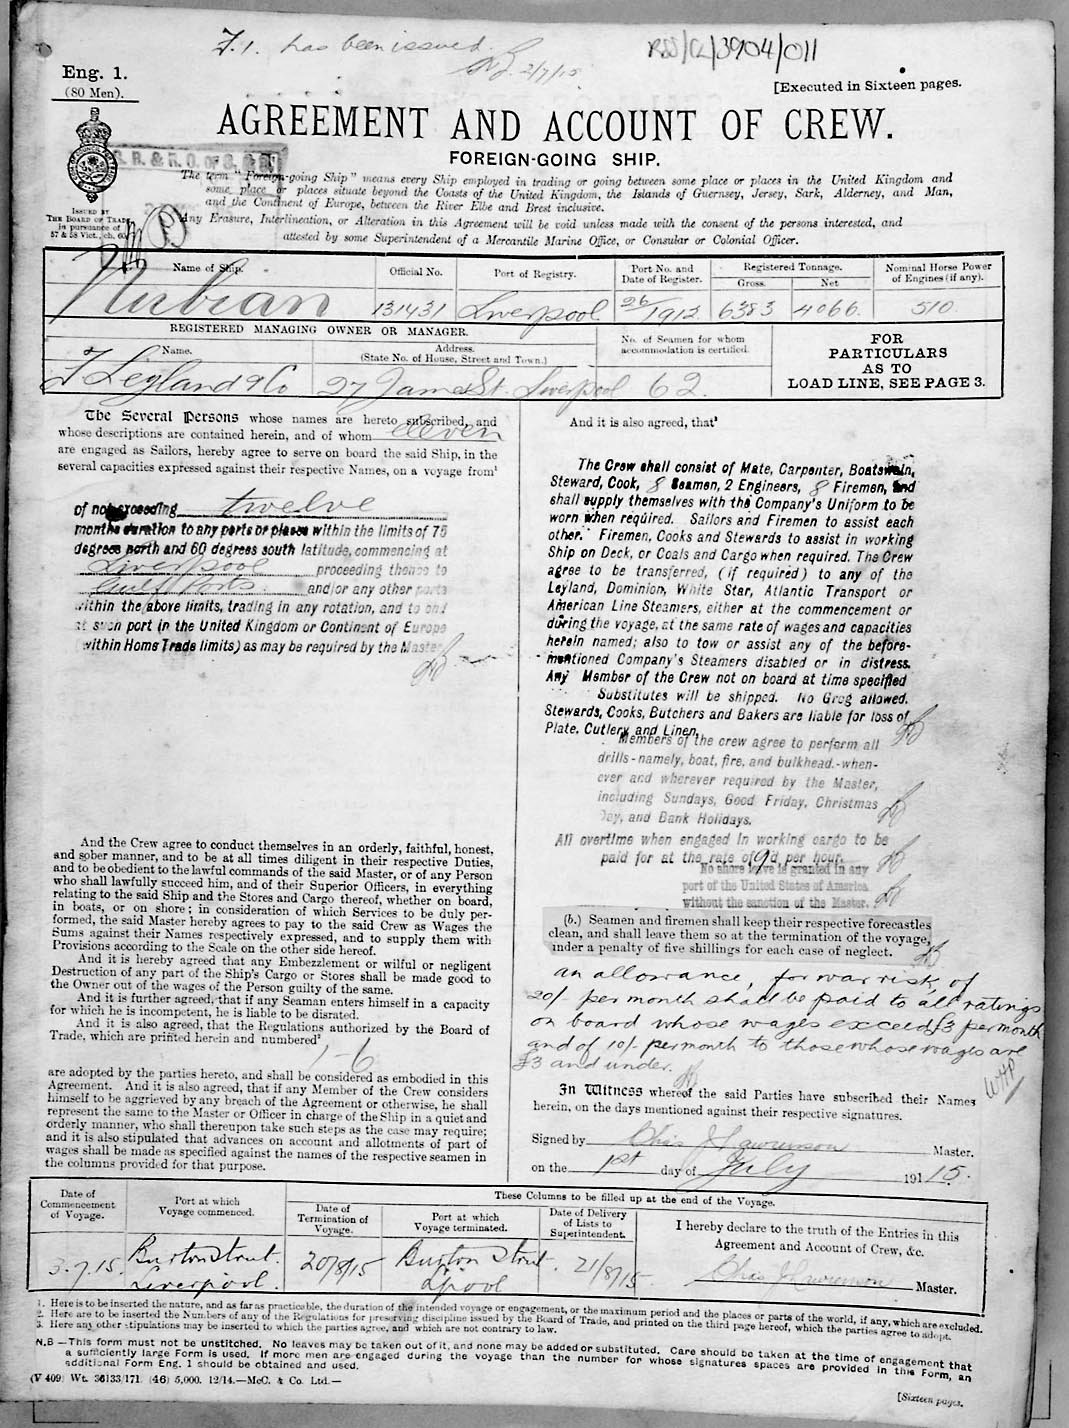 F.1. has been issued.
2/7/15
RSS/CL/3904/011
Eng. 1.
(80 Men).
[Executed in Sixteen pages.
AGREEMENT AND ACCOUNT OF CREW.
FOREIGN-GOING SHIP.
The term "Foreign-going Ship" means every Ship employed in trading or going between some place or places in the United Kingdom and
some place or places situate beyond the Coasts of the United Kingdom, the Islands of Guernsey, Jersey, Sark, Alderney, and Man,
and the Continent of Europe, between the River Elbe and Brest inclusive.
Any Erasure, Interlineation, or Alteration in this Agreement will be void unless made with the consent of the persons interested, and
attested by some Superintendent of a Mercantile Marine Office, or Consular or Colonial Officer.
ISSUED BY
THE BOARD OF TRADE
in pursuance of
57 & 58 Vict., ch. 60.
Name of Ship. Official No. Port of Registry. Port No. and Date of Register. Registered Tonnage. Gross. Net Nominal Horse Power of Engines (if any).
Nubian 131431 Liverpool 26/1912 6383 4066. 510.
REGISTERED MANAGING OWNER OR MANAGER.
Name. Address. (State No. of House, Street and Town.)
No. of Seamen for whom accommodation is certified.
F Leyland & Co 27 James St. Liverpool 62.
FOR
PARTICULARS
AS TO
LOAD LINE, SEE PAGE 3.
The Several Persons whose names are hereto subscribed, and
whose descriptions are contained herein, and of whom eleven
are engaged as Sailors, hereby agree to serve on board the said Ship, in the
several capacities expressed against their respective Names, on a voyage from¹
of not exceeding twelve
months duration to any ports or places within the limits of 75
degrees north and 60 degrees south latitude, commencing at
Liverpool proceeding thence to
Gulf Ports and/or any other ports
within the above limits, trading in any rotation, and to end
at such port in the United Kingdom or Continent of Europe
within Home Trade limits) as may be required by the Master
And the Crew agree to conduct themselves in an orderly, faithful, honest,
and sober manner, and to be at all times diligent in their respective Duties,
and to be obedient to the lawful commands of the said Master, or of any Person
who shall lawfully succeed him, and of their Superior Officers, in everything
relating to the said Ship and the Stores and Cargo thereof, whether on board,
in boats, or on shore; in consideration of which Services to be duly per-
formed, the said Master hereby agrees to pay to the said Crew as Wages the
Sums against their Names respectively expressed, and to supply them with
Provisions according to the Scale on the other side hereof.
And it is hereby agreed that any Embezzlement or wilful or negligent
Destruction of any part of the Ship's Cargo or Stores shall be made good to
the Owner out of the wages of the Person guilty of the same.
And it is further agreed, that if any Seaman enters himself in a capacity
for which he is incompetent, he is liable to be disrated.
And it is also agreed, that the Regulations authorized by the Board of
Trade, which are printed herein and numbered²
1-6
are adopted by the parties hereto, and shall be considered as embodied in this
Agreement. And it is also agreed, that if any Member of the Crew considers
himself to be aggrieved by any breach of the Agreement or otherwise, he shall
represent the same to the Master or Officer in charge of the Ship in a quiet and
orderly manner, who shall thereupon take such steps as the case may require;
and it is also stipulated that advances on account and allotments of part of
wages shall be made as specified against the names of the respective seamen in
the columns provided for that purpose.
And it is also agreed, that³
The Crew shall consist of Mate, Carpenter, Boatswain,
Steward, Cook, 8 Seamen, 2 Engineers, 8 Firemen, and
shall supply themselves with the Company's Uniform to be
worn when required. Sailors and Firemen to assist each
other. Firemen, Cooks and Stewards to assist in working
Ship on Deck, or Coals and Cargo when required. The Crew
agree to be transferred, (if required) to any of the
Leyland, Dominion, White Star, Atlantic Transport or
American Line Steamers, either at the commencement or
during the voyage, at the same rate of wages and capacities
herein named; also to tow or assist any of the before-
mentioned Company's Steamers disabled or in distress.
Any Member of the Crew not on board at time specified
Substitutes will be shipped. No Grog allowed.
Stewards, Cooks, Butchers and Bakers are liable for loss of
Plate, Cutlery and Linen.
Members of the crew agree to perform all
drills-namely, boat, fire, and bulkhead-when-
ever and wherever required by the Master,
including Sundays, Good Friday, Christmas
Day, and Bank Holidays.
All overtime when engaged in working cargo to be
paid for at the rate of 9d per hour.
No shore leave is granted in any
port of the United States of America
without the sanction of the Master.
(b.) Seamen and firemen shall keep their respective forecastles
clean, and shall leave them so at the termination of the voyage,
under a penalty of five shillings for each case of neglect.
an allowance, for war risk, of
20/- per month shall be paid to all ratings
on board whose wages exceed £3 per month
and of 10/- per month to those whose wages are
£3 and under.
In Witness whereof the said Parties have subscribed their Names
herein, on the days mentioned against their respective signatures.
Signed by Chas J Lawrenson Master.
on the 1st day of July 1915.
Date of Commencement of Voyage. Port at which Voyage commenced. These Columns to be filled up at the end of the Voyage.
Date of Termination of Voyage. Port at which Voyage terminated. Date of Delivery of Lists to Superintendent.
I hereby declare to the truth of the Entries in this
Agreement and Account of Crew, &c.
3.7.15. Burton Strut. Liverpool. 20/8/15 Burton Strut. Lpool 21/8/15 Chas J Lawrenson Master.
1. Here is to be inserted the nature, and as far as practicable, the duration of the intended voyage or engagement, or the maximum period and the places or parts of the world, if any, which are excluded.
2. Here are to be inserted the Numbers of any of the Regulations for preserving discipline issued by the Board of Trade, and printed on the third page hereof, which the parties agree to adopt.
3. Here any other stipulations may be inserted to which the parties agree, and which are not contrary to law.
N.B—This form must not be unstitched. No leaves may be taken out of it, and none may be added or substituted. Care should be taken at the time of engagement that
a sufficiently large Form is used. If more men are engaged during the voyage than the number for whose signatures spaces are provided in this Form, an
additional Form Eng. 1 should be obtained and used.
(V 409) Wt. 36133/171 (46) 5,000. 12/14.—McC. & Co. Ltd.—
[Sixteen pages.